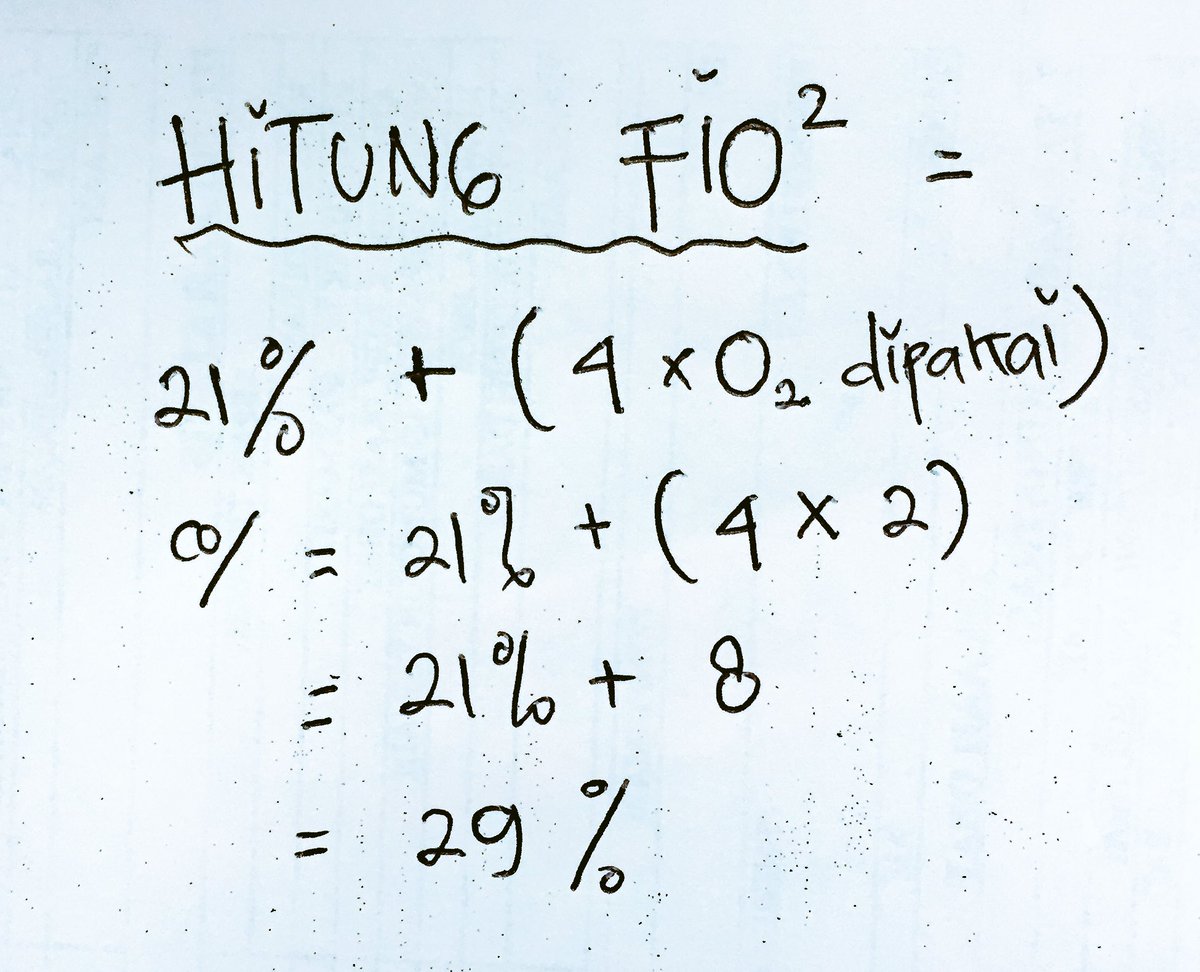 HiTUNG FiO² =
21% + (4 x O₂ dipakai)
% = 21% + (4 x 2)
= 21% + 8
= 29 %